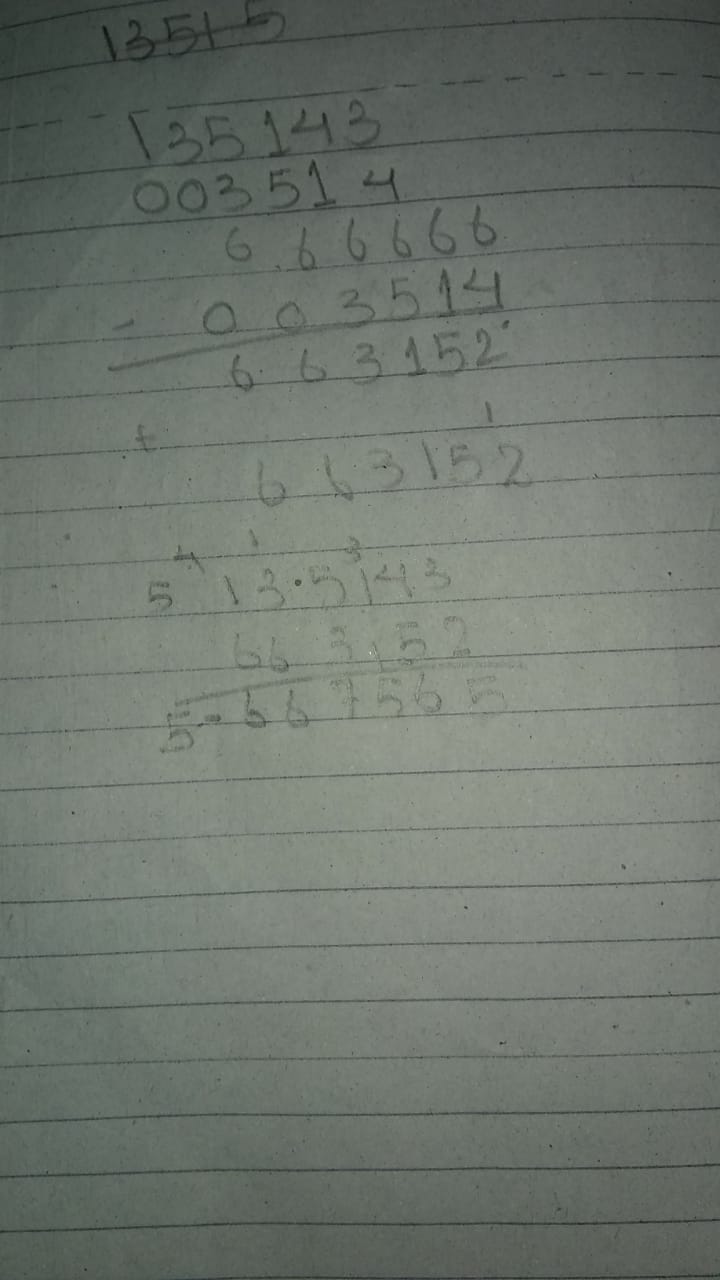 13515
135143
003514
6.66666
- 003514
663152
+ 1
663152
5 4 1 3
13.5143
663152
5-667565